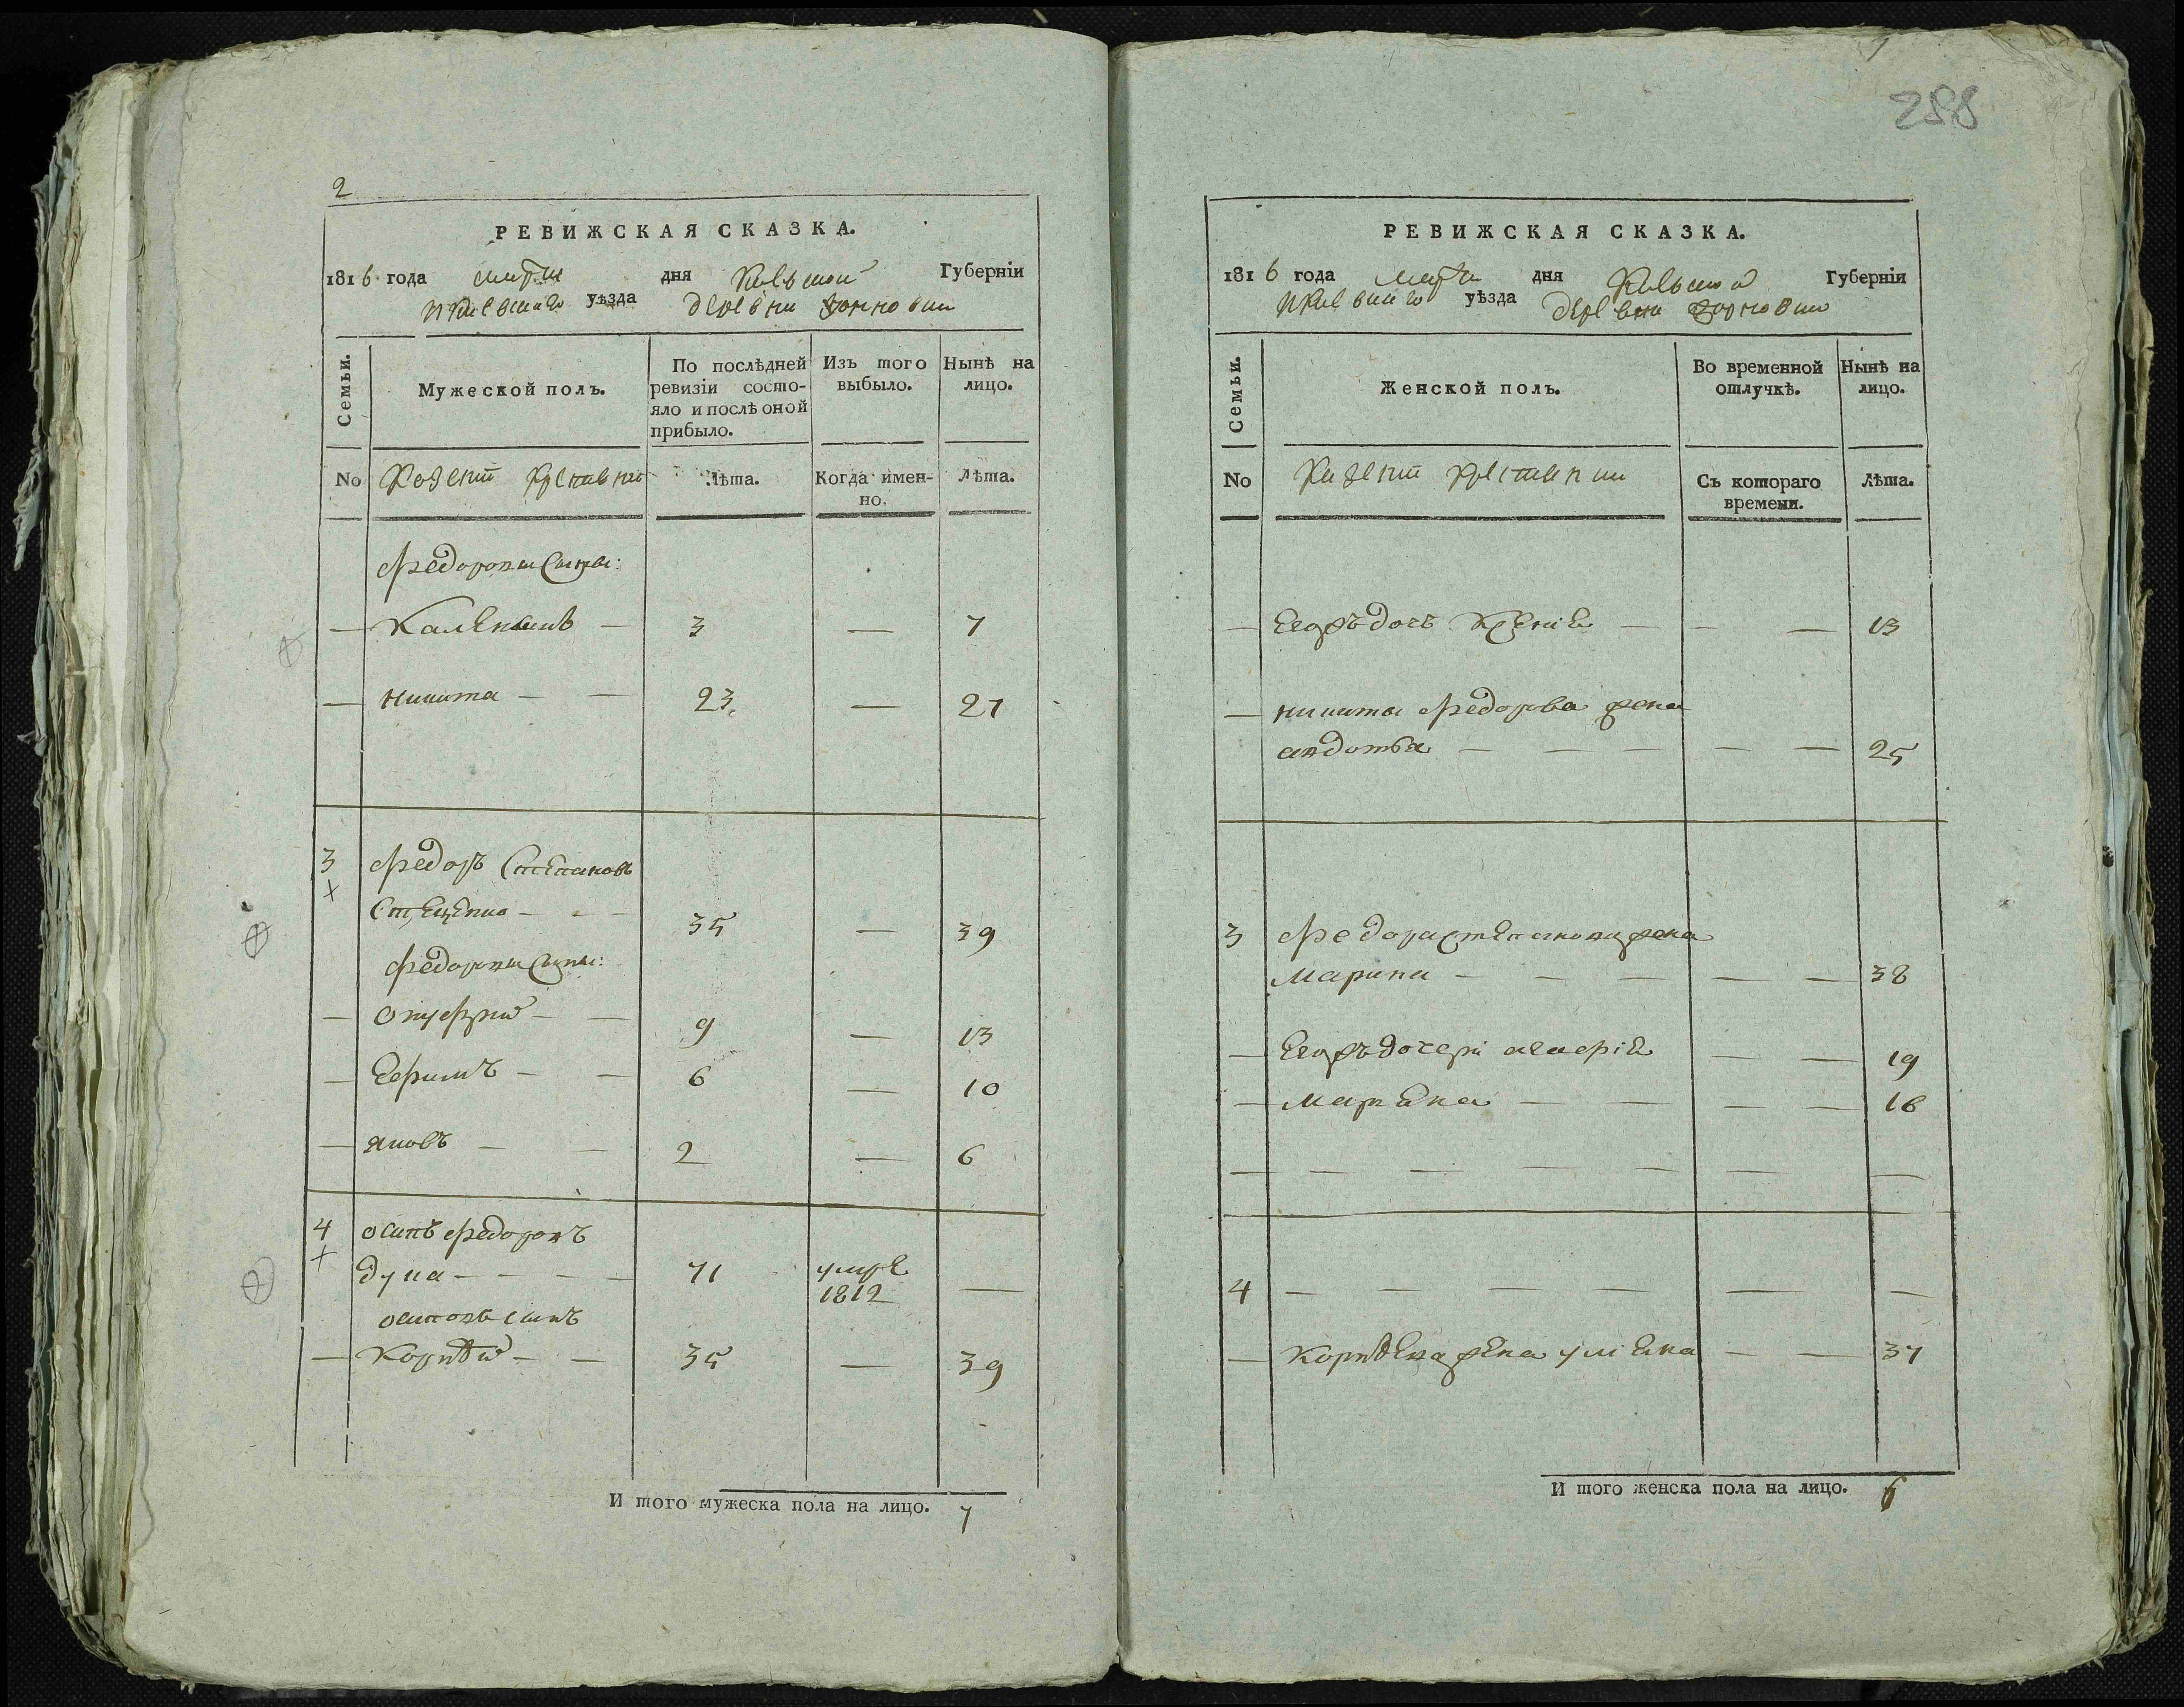 2
РЕВИЖСКАЯ СКАЗКА.
1816 года марта дня Киевской Губерніи
Киевского уѣзда деревни
Семьи.
Мужеской полъ.
По послѣдней ревизіи состо-
яло и послѣ оной
прибыло.
Изъ того
выбыло.
Нынѣ на
лицо.
No
Лѣта.
Когда имен-
но.
Лѣта.
Федоровы Сыны:
— Каленикъ — 3 — 7
— никита — — 23 — 27
3 Федоръ Степановъ
Стеценко — — — 35 — 39
Федоровы Сыны:
— онуфрий — — 9 — 13
— Ефимъ — — 6 — 10
— яковъ — — 2 — 6
4 осипъ Федоровъ
дука — — — — 71 умре 1812 —
осиповъ сынъ
— Корнѣй — — 35 — 39
И того мужеска пола на лицо. 7
288
РЕВИЖСКАЯ СКАЗКА.
1816 года марта дня Киевской Губерніи
Киевского уѣзда деревни
Семьи.
Женской полъ.
Во временной
отлучкѣ.
Нынѣ на
лицо.
No
Съ котораго
времени.
Лѣта.
— — — — 13
— никиты Федорова жена
авдотья — — — — — 25
3 Федора Степанова жена
Марина — — — — — 38
— дочери — — 19
— Марьяна — — — — 16
— — — — — — —
4 — — — — — —
— Корнѣева жена улияна — — 37
И того женска пола на лицо. 6